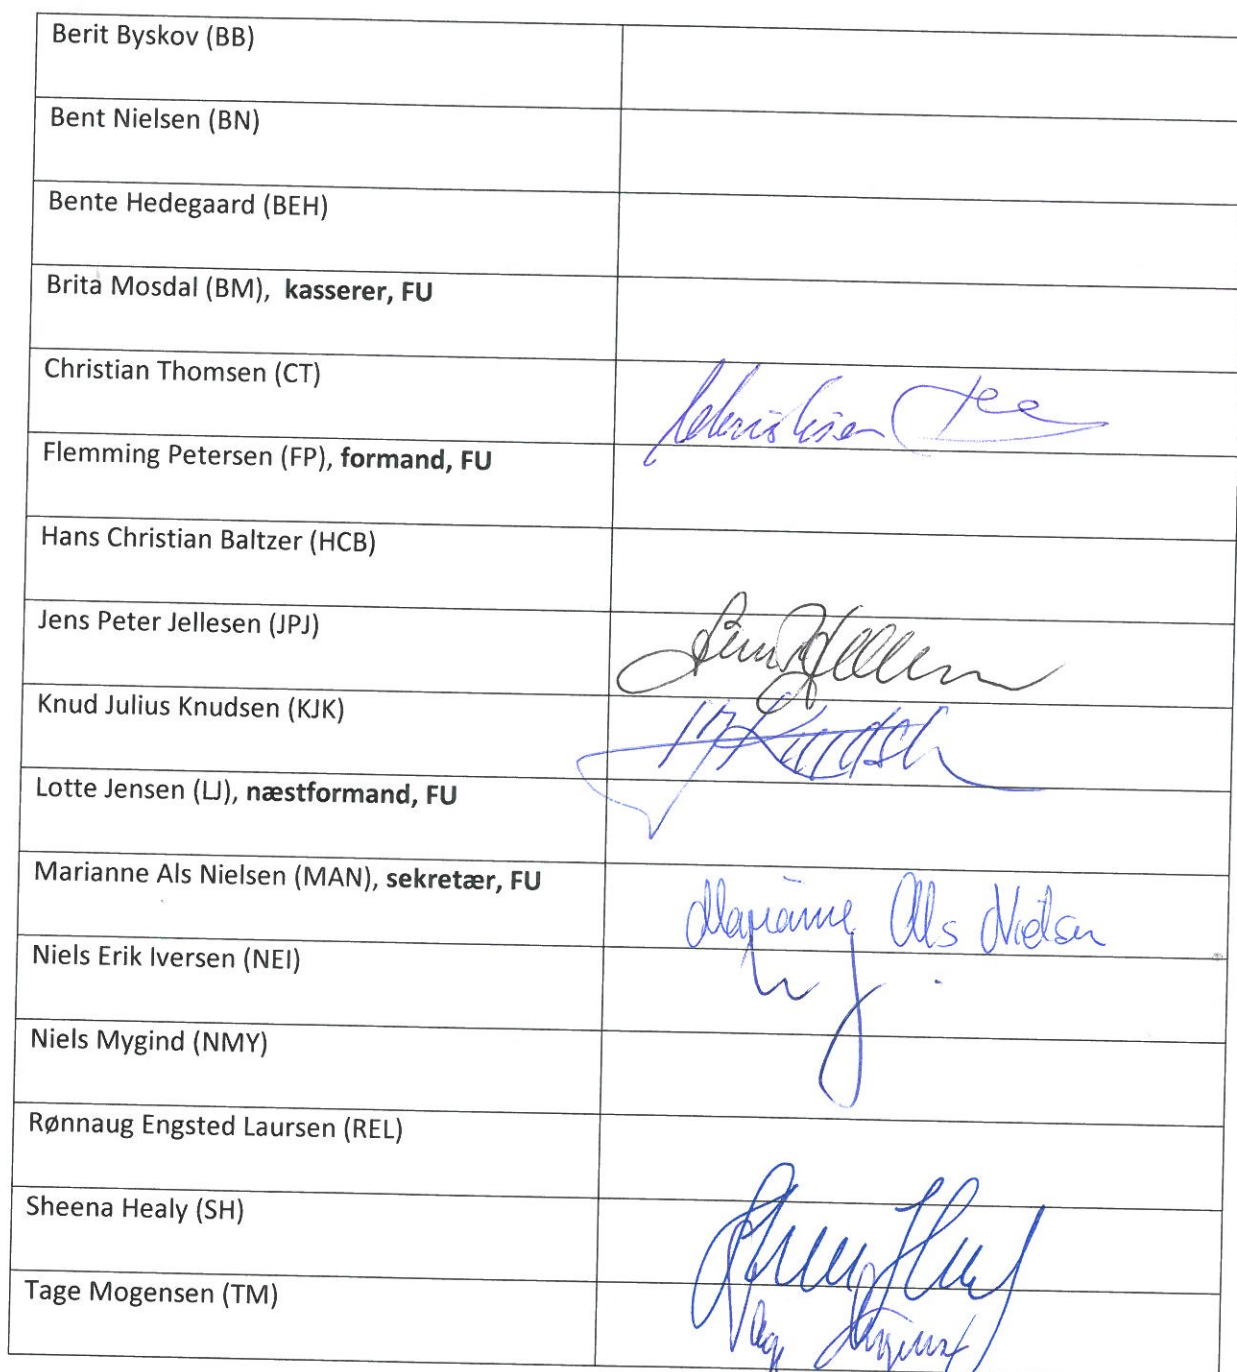 Berit Byskov (BB)
Bent Nielsen (BN)
Bente Hedegaard (BEH)
Brita Mosdal (BM), kasserer, FU
Christian Thomsen (CT)
Flemming Petersen (FP), formand, FU
Hans Christian Baltzer (HCB)
Jens Peter Jellesen (JPJ)
Knud Julius Knudsen (KJK)
Lotte Jensen (LJ), næstformand, FU
Marianne Als Nielsen (MAN), sekretær, FU
Marianne Als Nielsen
Niels Erik Iversen (NEI)
Niels Mygind (NMY)
Rønnaug Engsted Laursen (REL)
Sheena Healy (SH)
Tage Mogensen (TM)